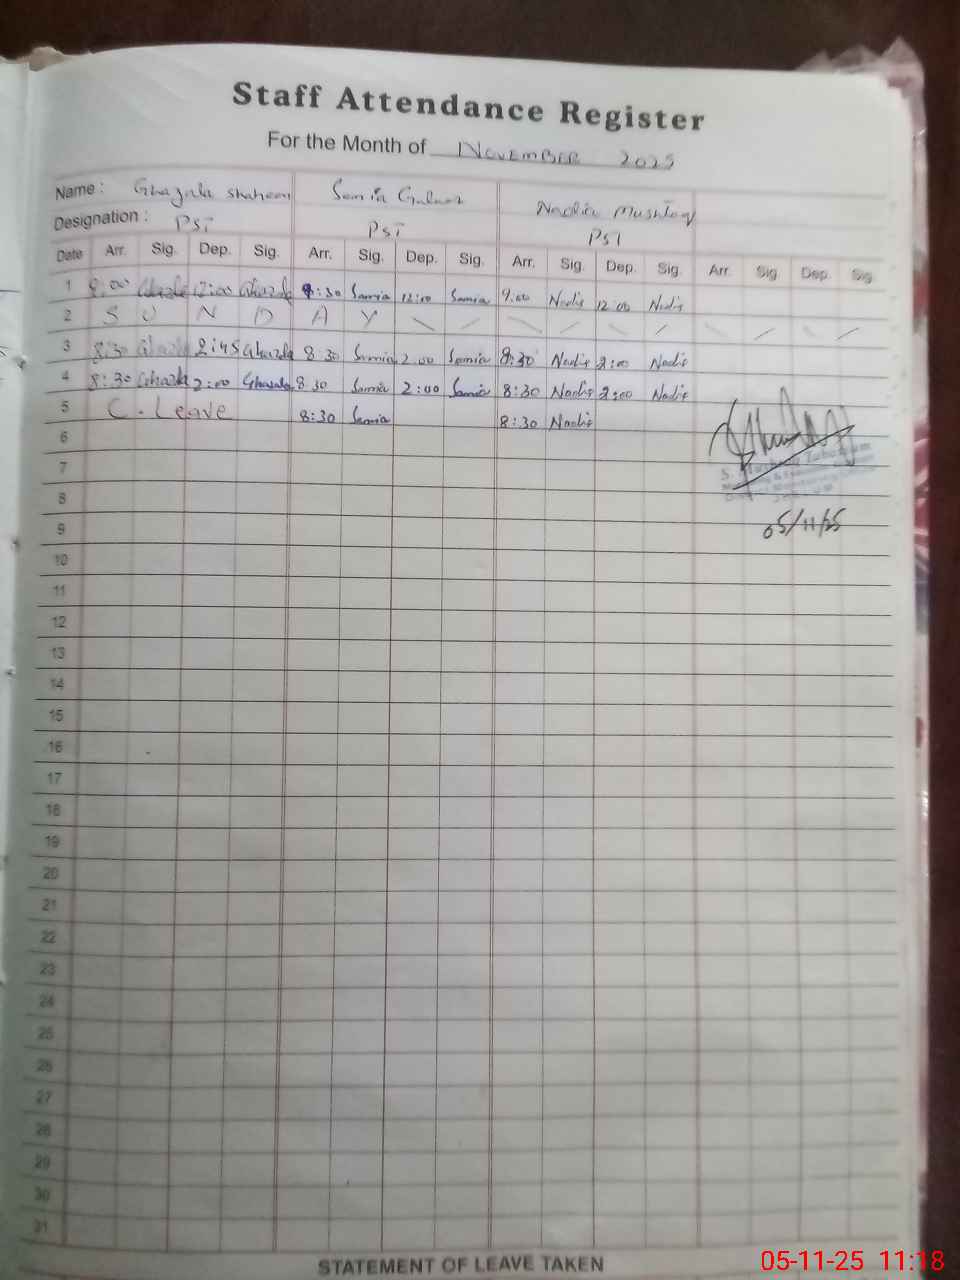 Staff Attendance Register
For the Month of November 2025
Name : Ghazala Shaheen Samia Nadia Mushtaq
Designation : PST PST PST
Date Arr. Sig. Dep. Sig. Arr. Sig. Dep. Sig. Arr. Sig. Dep. Sig. Arr. Sig. Dep. Sig.
1 9:00 Ghazala 12:00 Ghazala :30 Samia 12:00 Samia 9:00 Nadia 12:00 Nadia
2 S U N D A Y
3 8:30 Ghazala 2:45 Ghazala 8 30 Samia 2.00 Samia 8:30 Nadia 2:00 Nadia
4 8:30 Ghazala 2:00 Ghazala 8 30 Samia 2:00 Samia 8:30 Nadia 2:00 Nadia
5 C. Leave 8:30 Samia 8:30 Nadia
6
7
8
9
05/11/25
10
11
12
13
14
15
16
17
18
19
20
21
22
23
24
25
26
27
28
29
30
31
STATEMENT OF LEAVE TAKEN
05-11-25 11:18